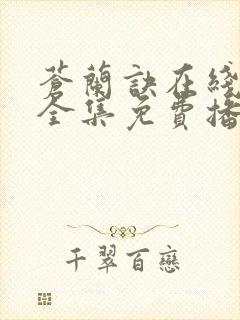 蒼蘭訣在綫
全集免費播
千翠百戀